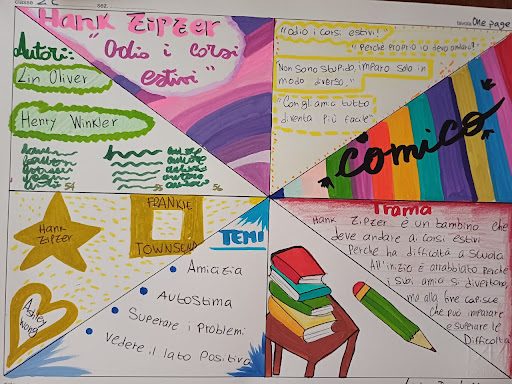 Classe
2C
Sez.
tavola One page
HANK ZIPZER
"Odio i corsi
estivi"
Autori:
Lin Oliver
Henry Winkler
54
55
56
"Odio i corsi estivi!"
"Perché proprio io devo andare?"
Non sono stupido, imparo solo in
modo diverso."
"Con gli amici tutto
diventa più facile"
Comico
HANK
ZIPZER
FRANKIE
TOWNSEND
Ashley
Wong
TEMI
• Amicizia
• Autostima
• Superare i problemi
• Vedere il lato positivo
Trama
Hank Zipzer è un bambino che
deve andare a corsi estivi
perché ha difficoltà a scuola
All'inizio è arrabbiato perché
i suoi amici si divertono,
ma alla fine capisce
che può imparare
e superare le
Difficoltà